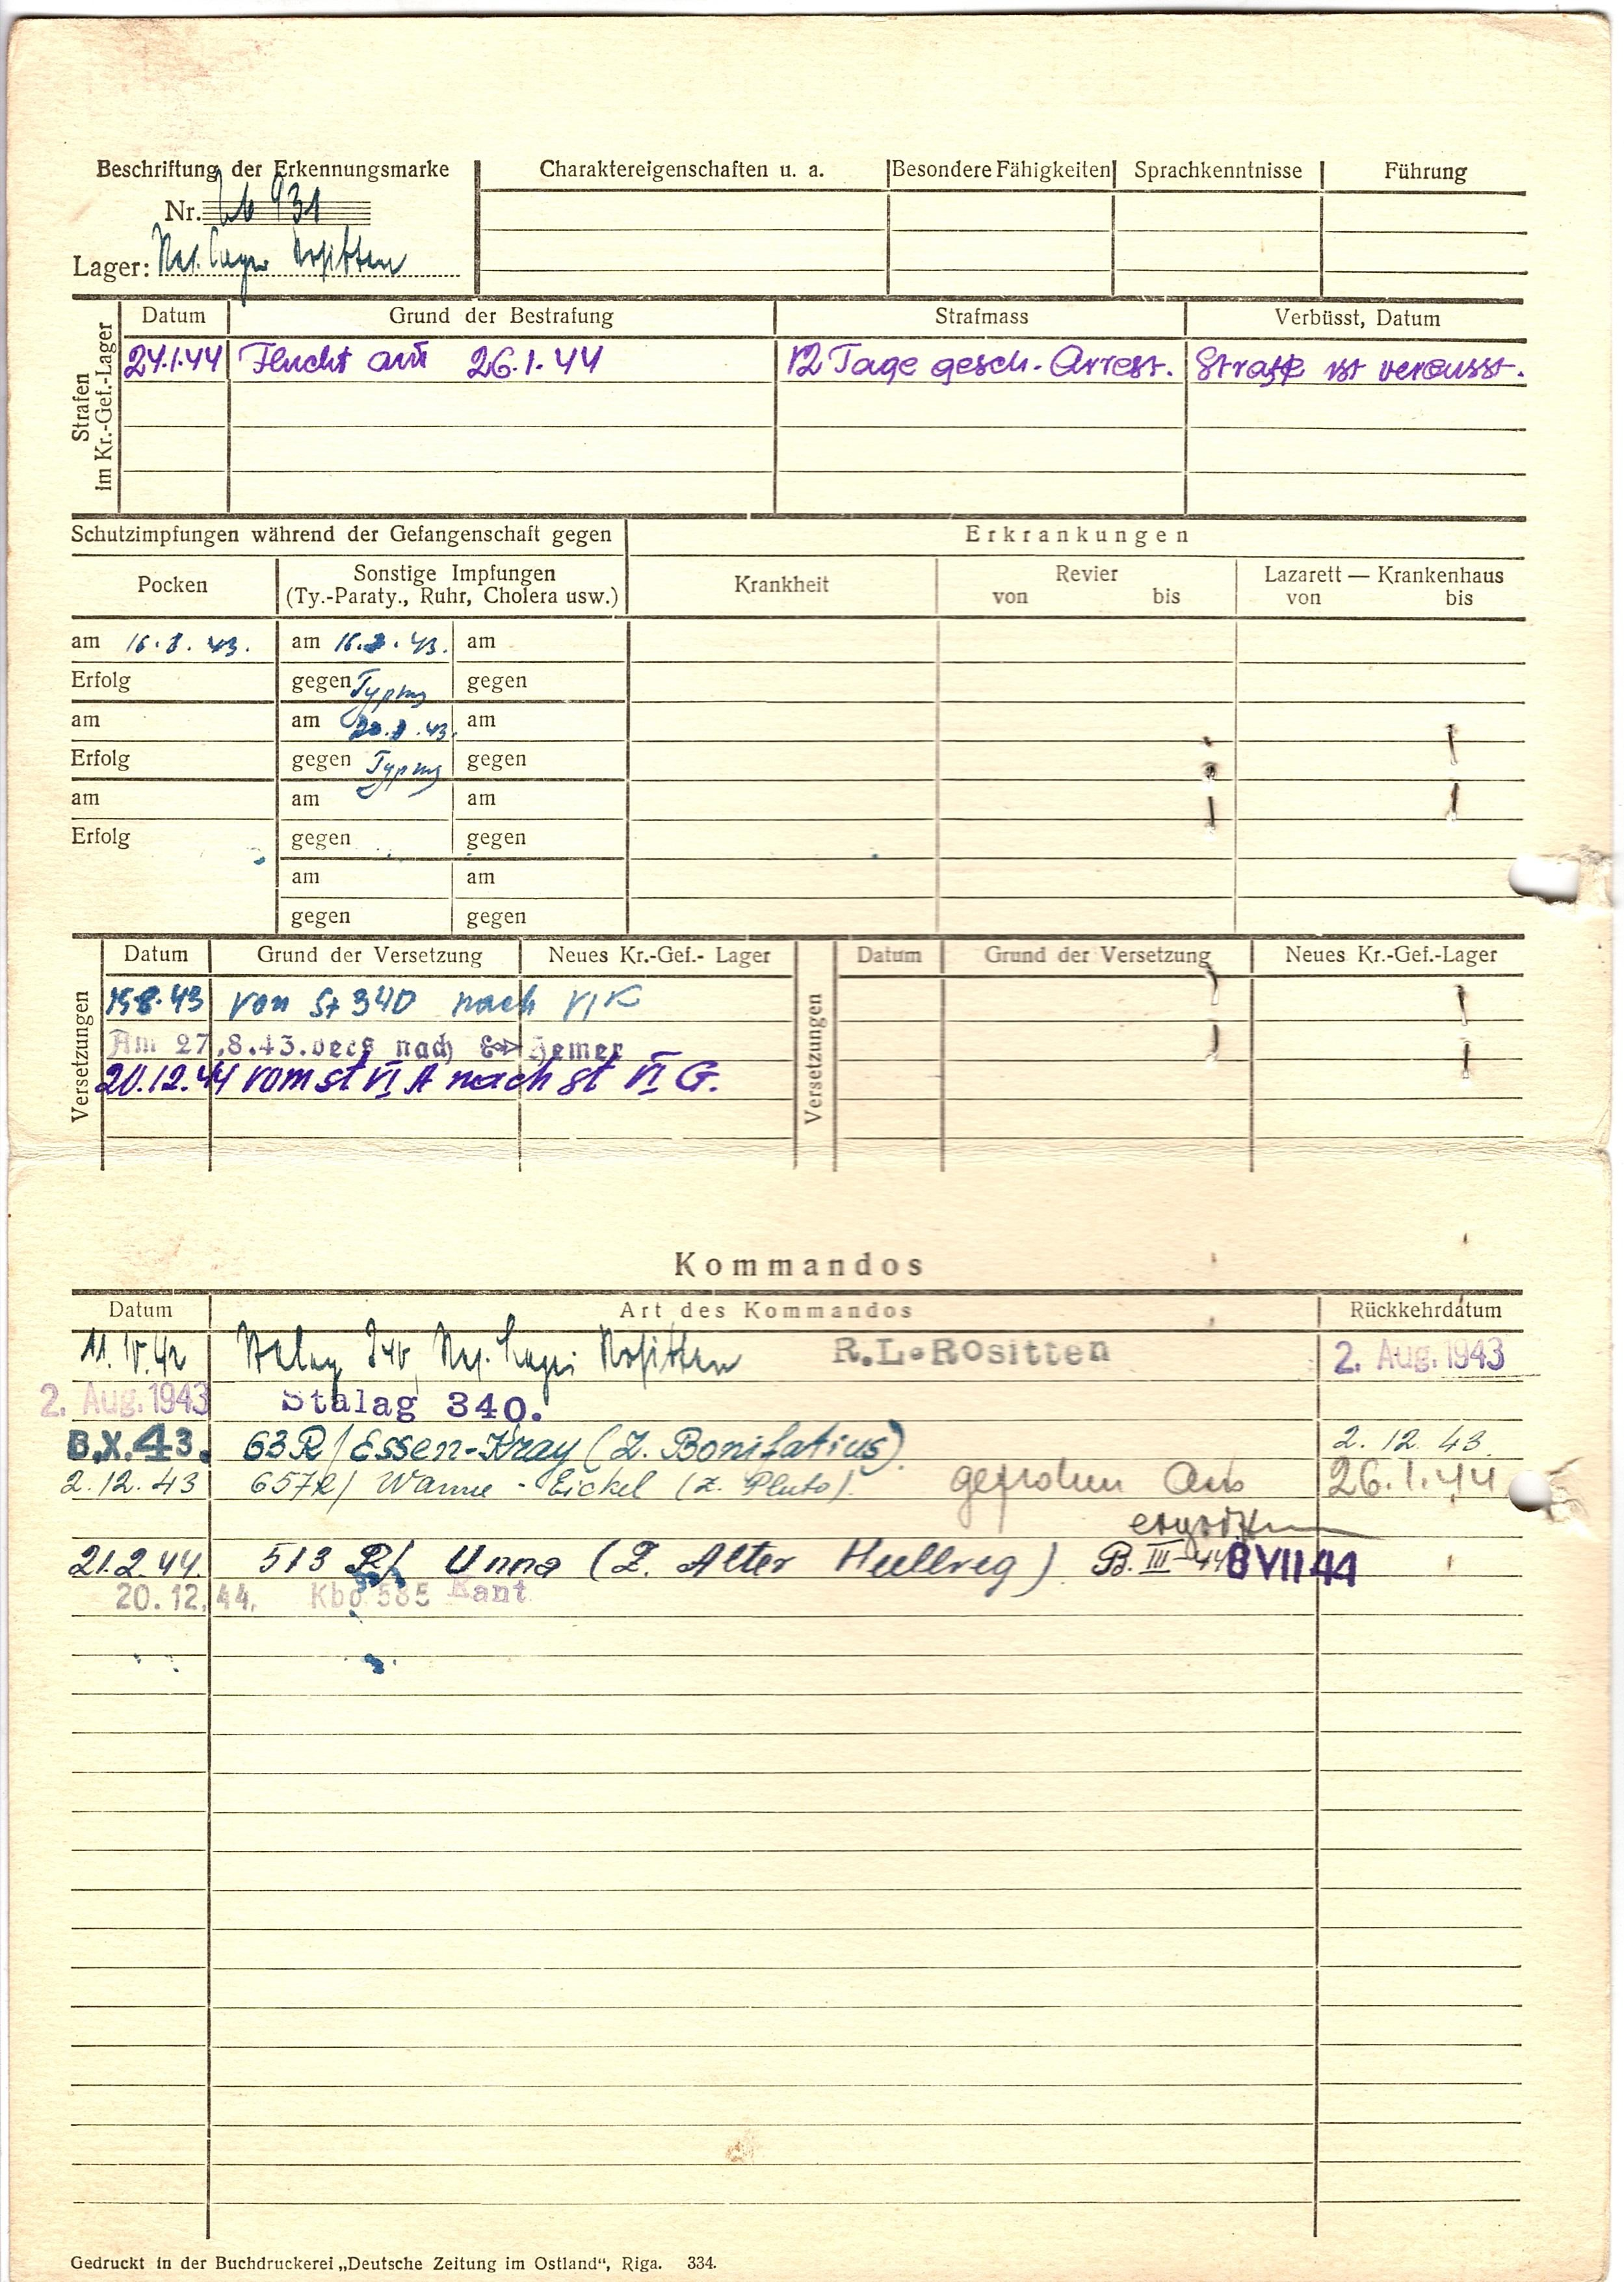 Beschriftung der Erkennungsmarke Charaktereigenschaften u. a. Besondere Fähigkeiten Sprachkenntnisse Führung
Nr. 931
Lager: Rositten
Strafen im Kr.-Gef.-Lager
Datum Grund der Bestrafung Strafmass Verbüsst, Datum
27.1.44 Flucht am 26.1.44 12 Tage gesch. Arrest. Strafe ist verbüsst.
Schutzimpfungen während der Gefangenschaft gegen Erkrankungen
Pocken Sonstige Impfungen Krankheit Revier Lazarett — Krankenhaus
(Ty.-Paraty., Ruhr, Cholera usw.) von bis von bis
am 16.8.43. am 16.8.43. am
Erfolg gegen Typhus gegen
am am 20.8.43. am
Erfolg gegen Typhus gegen
am am am
Erfolg gegen gegen
am am
gegen gegen
Versetzungen
Datum Grund der Versetzung Neues Kr.-Gef.- Lager Versetzungen Datum Grund der Versetzung Neues Kr.-Gef.-Lager
von St 340 nach VI K
Am 27.8.43. vers nach Hemer
20.12.44 vom st VI A nach st VI G.
Kommandos
Datum Art des Kommandos Rückkehrdatum
11.IV.42 Stalag 340, Rositten R.L. Rositten 2. Aug. 1943
2. Aug. 1943 Stalag 340.
8.X.43. 63 R/ Essen-Kray (Z. Bonifatius). 2.12.43.
2.12.43 657 R/ Wanne-Eickel (Z. Pluto). geflohen am 26.1.44
ergriffen
21.2.44. 513 R/ Unna (Z. Alter Hellweg) B. III-44 8 VII 44
20.12.44. Kdo 585 Kant
Gedruckt in der Buchdruckerei „Deutsche Zeitung im Ostland“, Riga. 334.